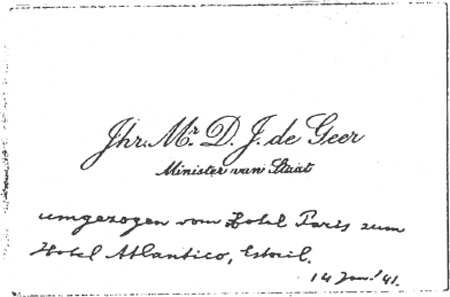 Jhr. Mr. D. J. de Geer
Minister van Staat
umgezogen vom Hotel Paris zum
Hotel Atlantico, Estoril.
14 Jan.' 41.